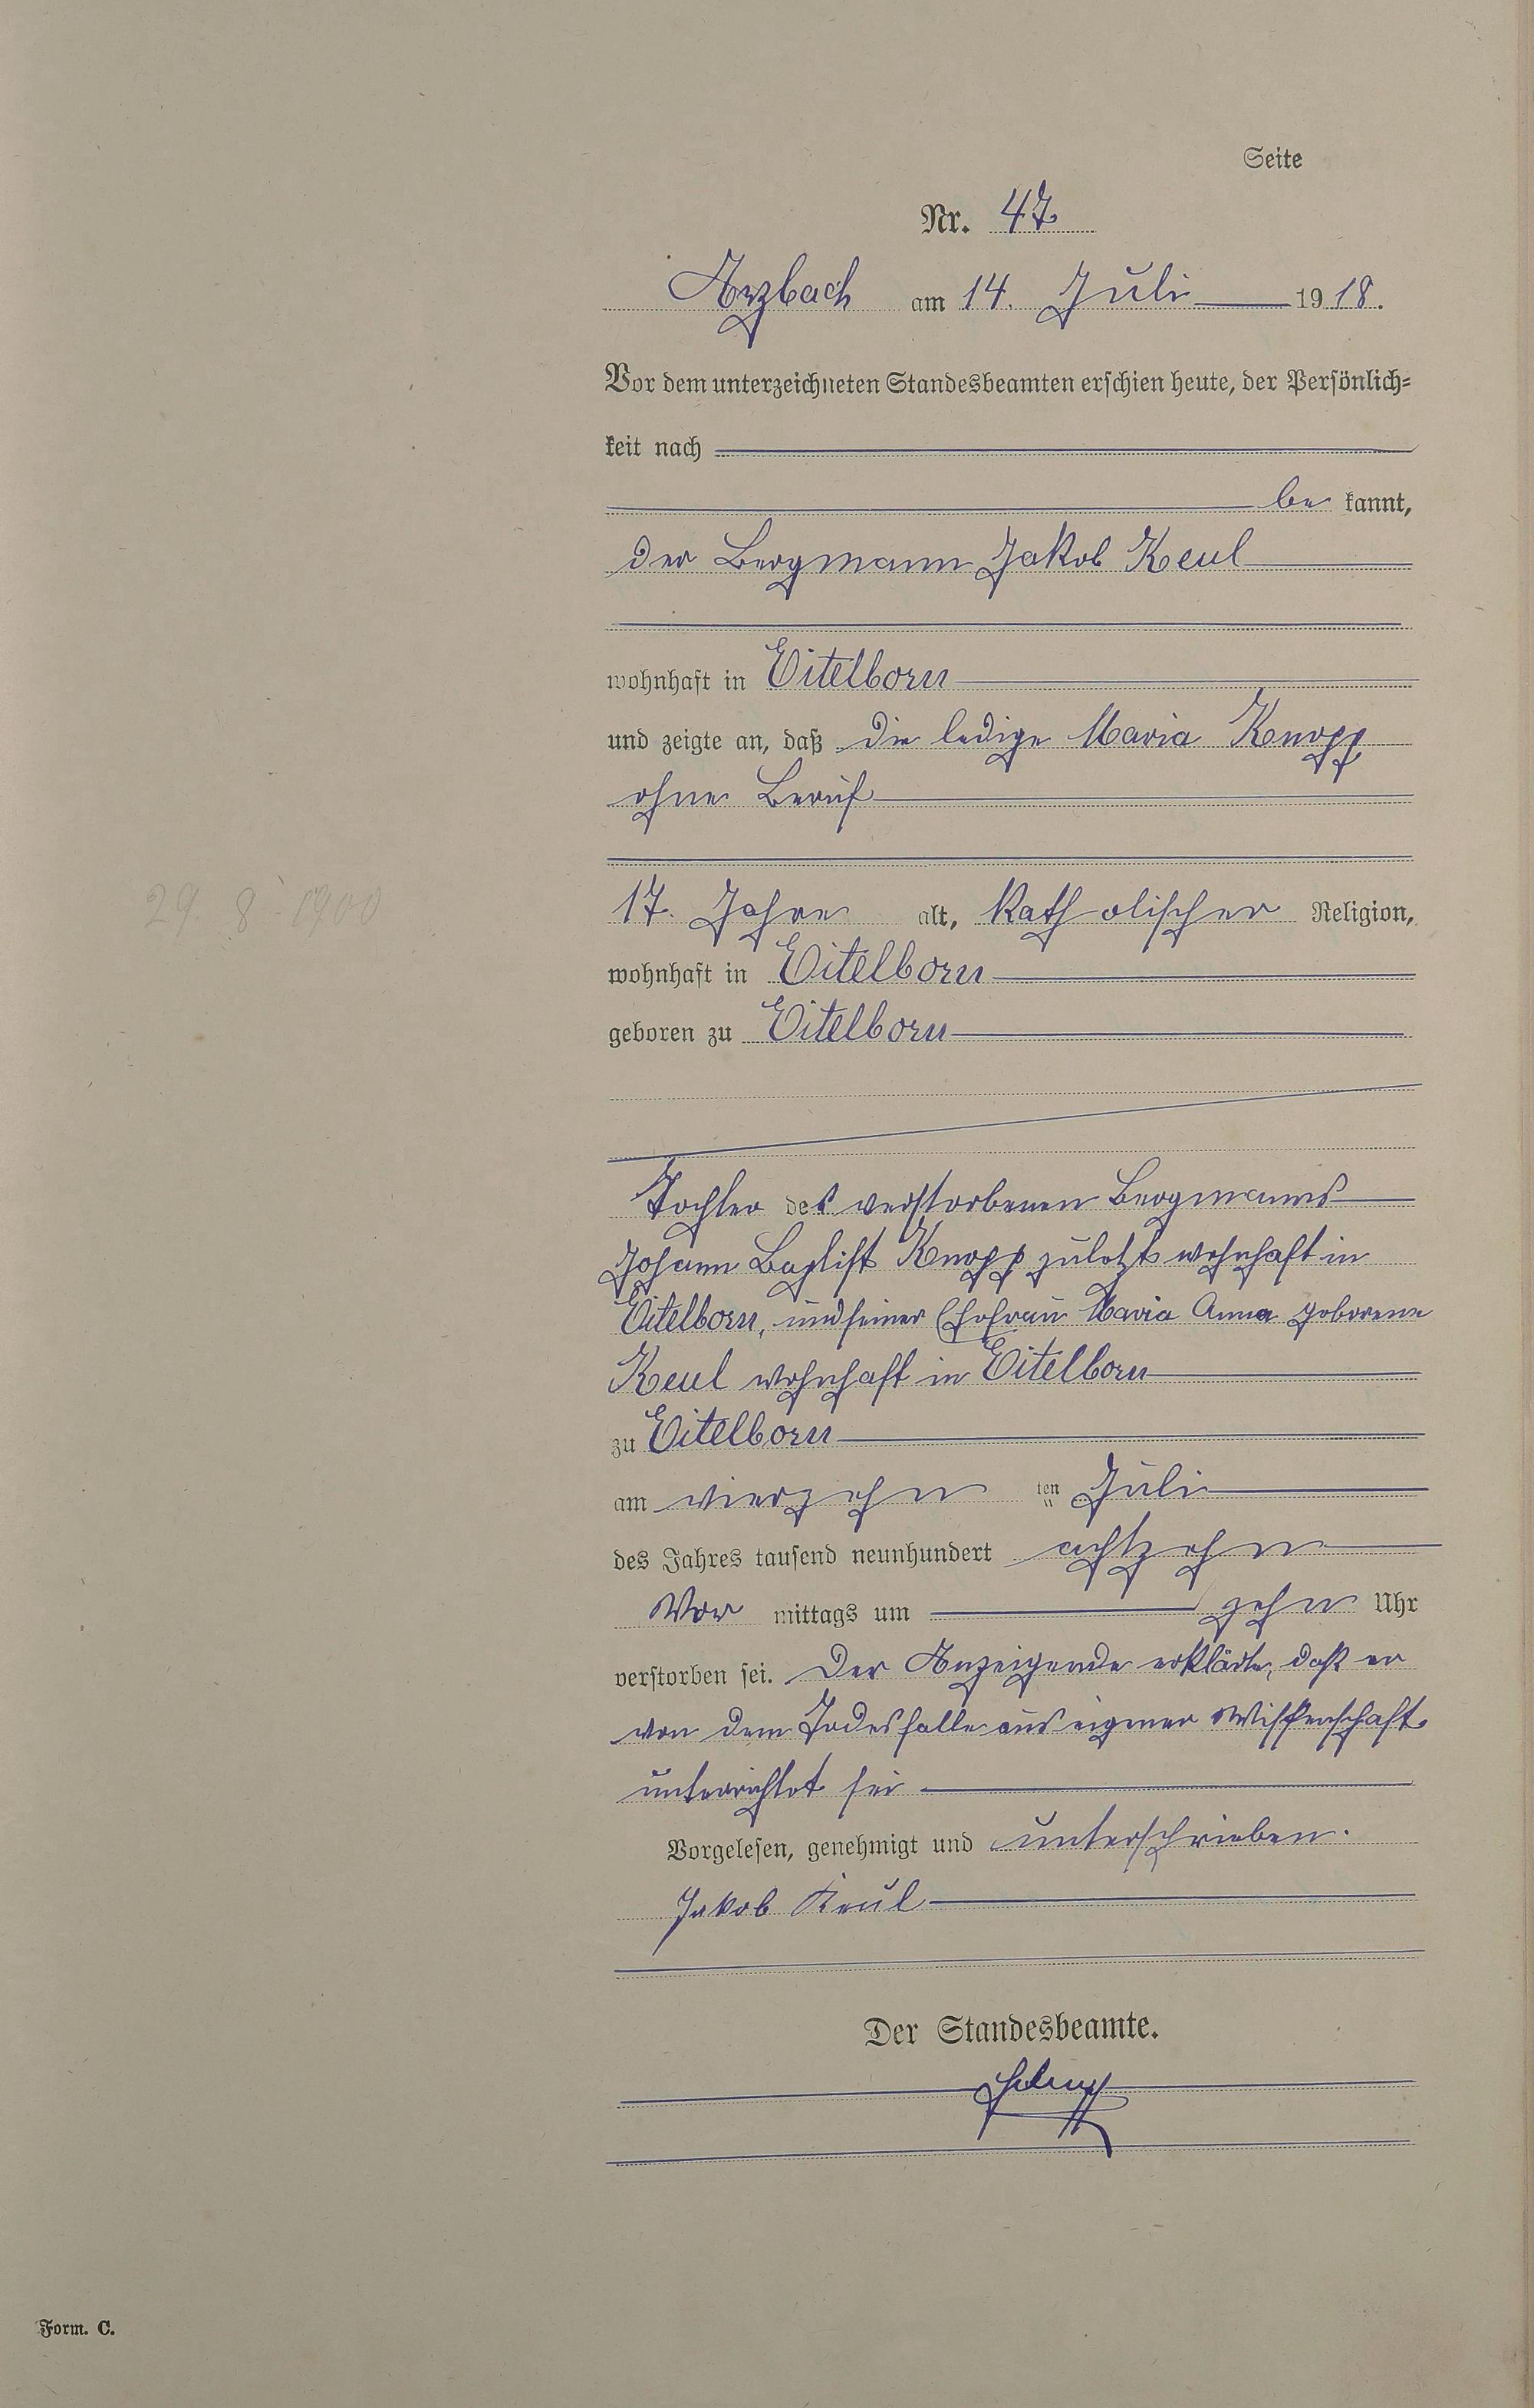 Seite
Nr. 47
Arzbach am 14. Juli 1918.
Vor dem unterzeichneten Standesbeamten erschien heute, der Persönlich=
keit nach
be kannt,
der Bergmann Jakob Keul
wohnhaft in Eitelborn
und zeigte an, daß die ledige Maria Knopp
ohne Beruf
29 8. 1900
17. Jahre alt, katholischer Religion,
wohnhaft in Eitelborn
geboren zu Eitelborn
Tochter des verstorbenen Bergmanns
Johann Baptist Knopp zuletzt wohnhaft in
Eitelborn, und seiner Ehefrau Maria Anna geborene
Keul wohnhaft in Eitelborn
zu Eitelborn
am vierzehn ten Juli
des Jahres tausend neunhundert achtzehn
Vor mittags um zehn Uhr
verstorben sei. Der Anzeigende erklärte, daß er
von dem Todesfalle aus eigener Wissenschaft
unterrichtet sei
Vorgelesen, genehmigt und unterschrieben.
Jakob Keul
Der Standesbeamte.
Form. C.